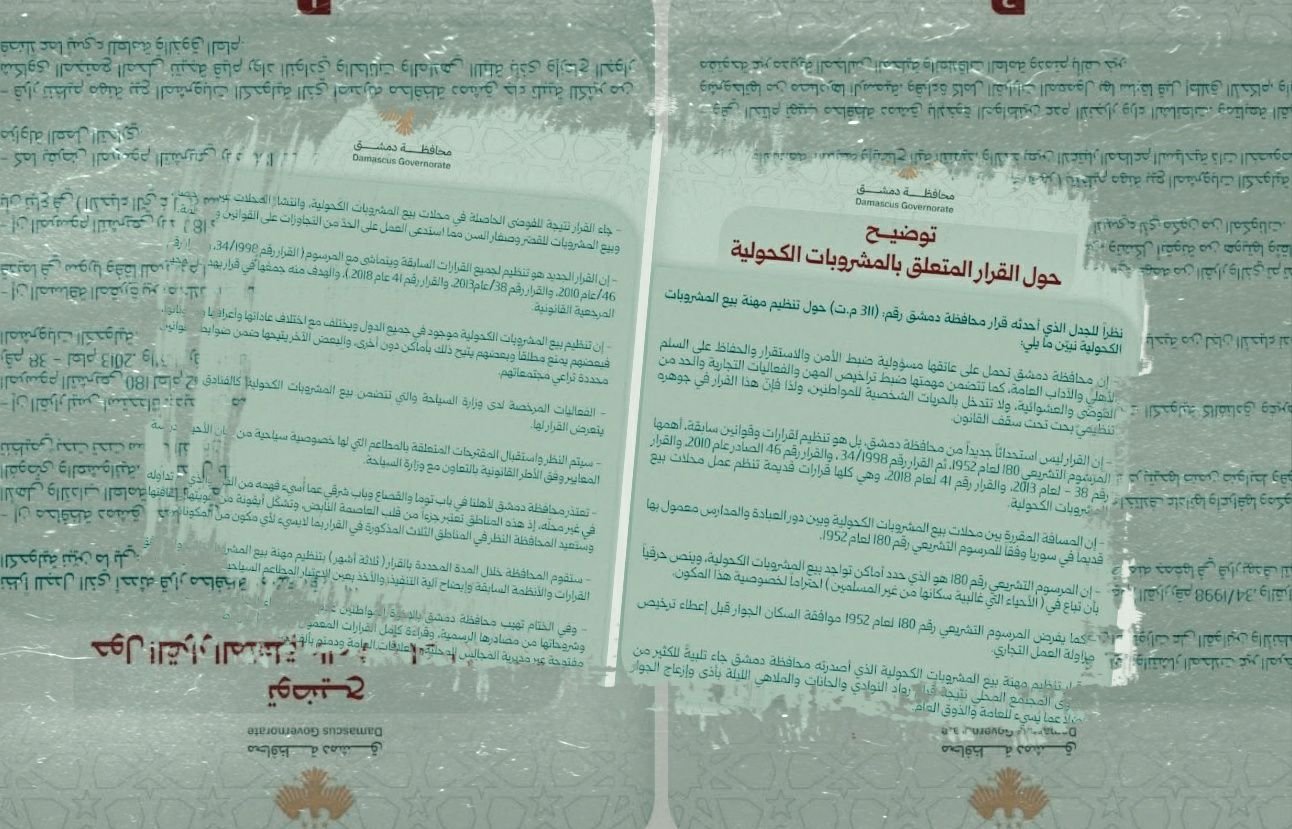 محافظة دمشق
Damascus Governorate
توضيح
حول القرار المتعلق بالمشروبات الكحولية
نظراً للجدل الذي أحدثه قرار محافظة دمشق رقم: (311 م.ت) حول تنظيم مهنة بيع المشروبات
الكحولية نبيّن ما يلي:
- إن محافظة دمشق تحمل على عاتقها مسؤولية ضبط الأمن والاستقرار والحفاظ على السلم
الأهلي والآداب العامة، كما تتضمن مهمتها ضبط تراخيص المهن والفعاليات التجارية والحد من
الفوضى والعشوائية، ولا تتدخل بالحريات الشخصية للمواطنين، ولذا فإنّ هذا القرار في جوهره
تنظيميّ بحت تحت سقف القانون.
- إن القرار ليس استحداثاً جديداً من محافظة دمشق، بل هو تنظيم لقرارات وقوانين سابقة، أهمها
المرسوم التشريعي 180 لعام 1952، ثم القرار رقم 34/1998، والقرار رقم 46 الصادر عام 2010، والقرار
رقم 38 – لعام 2013، والقرار رقم 41 لعام 2018، وهي كلها قرارات قديمة تنظم عمل محلات بيع
المشروبات الكحولية.
- إن المسافة المقررة بين محلات بيع المشروبات الكحولية وبين دور العبادة والمدارس معمول بها
قديماً في سوريا وفقاً للمرسوم التشريعي رقم 180 لعام 1952.
- إن المرسوم التشريعي رقم 180 هو الذي حدد أماكن تواجد بيع المشروبات الكحولية، وينص حرفياً
بأن تباع في ( الأحياء التي غالبية سكانها من غير المسلمين ) احتراماً لخصوصية هذا المكون.
كما يفرض المرسوم التشريعي رقم 180 لعام 1952 موافقة السكان الجوار قبل إعطاء ترخيص
مزاولة العمل التجاري.
- قرار تنظيم مهنة بيع المشروبات الكحولية الذي أصدرته محافظة دمشق جاء تلبيةً للكثير من
شكاوى المجتمع المحلي نتيجة قيام رواد النوادي والحانات والملاهي الليلة بأذى وإزعاج الجوار
فضلاً عما يسيء للعامة والذوق العام.
محافظة دمشق
Damascus Governorate
- جاء القرار نتيجة للفوضى الحاصلة في محلات بيع المشروبات الكحولية، وانتشار المحلات غير
وبيع المشروبات للقصّر وصغار السن مما استدعى العمل على الحدّ من التجاوزات على القوانين
- إن القرار الجديد هو تنظيم لجميع القرارات السابقة ويتماشى مع المرسوم ( القرار رقم 34/1998،
46/عام 2010، والقرار رقم 38/عام2013، والقرار رقم 41 عام 2018 )، والهدف منه جمعها في قرار
المرجعية القانونية.
- إن تنظيم بيع المشروبات الكحولية موجود في جميع الدول ويختلف مع اختلاف عاداتها وأعرافها
فبعضهم يمنع مطلقاً وبعضهم يتيح ذلك بأماكن دون أخرى، والبعض الآخر يتيحها ضمن ضوابط
محددة تراعي مجتمعاتهم.
- الفعاليات المرخصة لدى وزارة السياحة والتي تتضمن بيع المشروبات الكحولية كالفنادق
يتعرض القرار لها.
- سيتم النظر واستقبال المقترحات المتعلقة بالمطاعم التي لها خصوصية سياحية من
المعايير وفق الأطر القانونية بالتعاون مع وزارة السياحة.
- تعتذر محافظة دمشق لأهلنا في باب توما والقصاع وباب شرقي عما أُسيء فهمه من
في غير محلّه، إذ هذه المناطق تعتبر جزءاً من قلب العاصمة النابض، وتشكّل أيقونة من
وستعيد المحافظة النظر في المناطق الثلاث المذكورة في القرار بما لا يسيء لأي مكون من
- ستقوم المحافظة خلال المدة المحددة بالقرار ( ثلاثة أشهر ) بتنظيم مهنة بيع
القرارات والأنظمة السابقة وإيضاح آلية التنفيذ والأخذ بعين الاعتبار المطاعم
- وفي الختام تهيب محافظة دمشق بالإخوة المواطنين
وشروحاتها من مصادرها الرسمية، وقراءة كامل القرارات المعمول
مفتوحة عبر مديرية المجالس المحلية والعلاقات العامة ودمتم